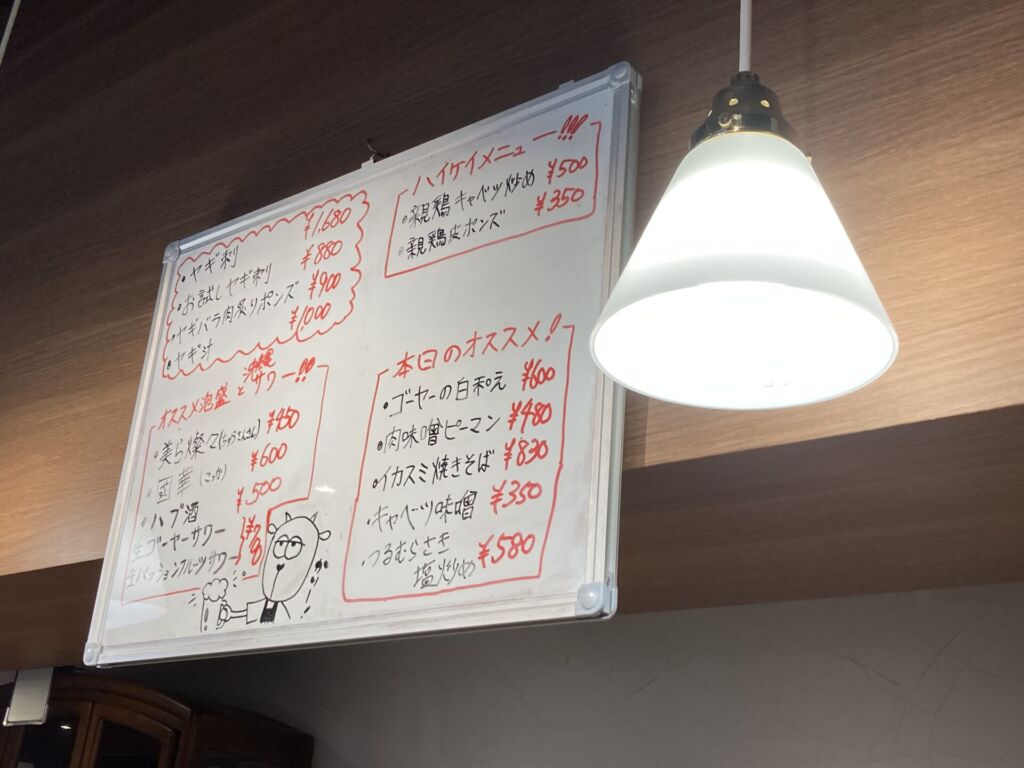 ・ヤギ刺 ¥1,680
・お試しヤギ刺 ¥880
・ヤギバラ肉炙りポンズ ¥900
・ヤギ汁 ¥1,000
オススメ泡盛と沖縄サワー!!
・美ら燦々(ちゅらさんさん) ¥450
・國華(こっか) ¥600
・ハブ酒 ¥500
生ゴーヤーサワー
生パッションフルーツサワー
ハイケイメニュー!!!
・親鶏キャベツ炒め ¥500
・親鶏皮ポンズ ¥350
本日のオススメ!
・ゴーヤーの白和え ¥600
・肉味噌ピーマン ¥480
・イカスミ焼きそば ¥830
・キャベツ味噌 ¥350
・つるむらさき
塩炒め ¥580